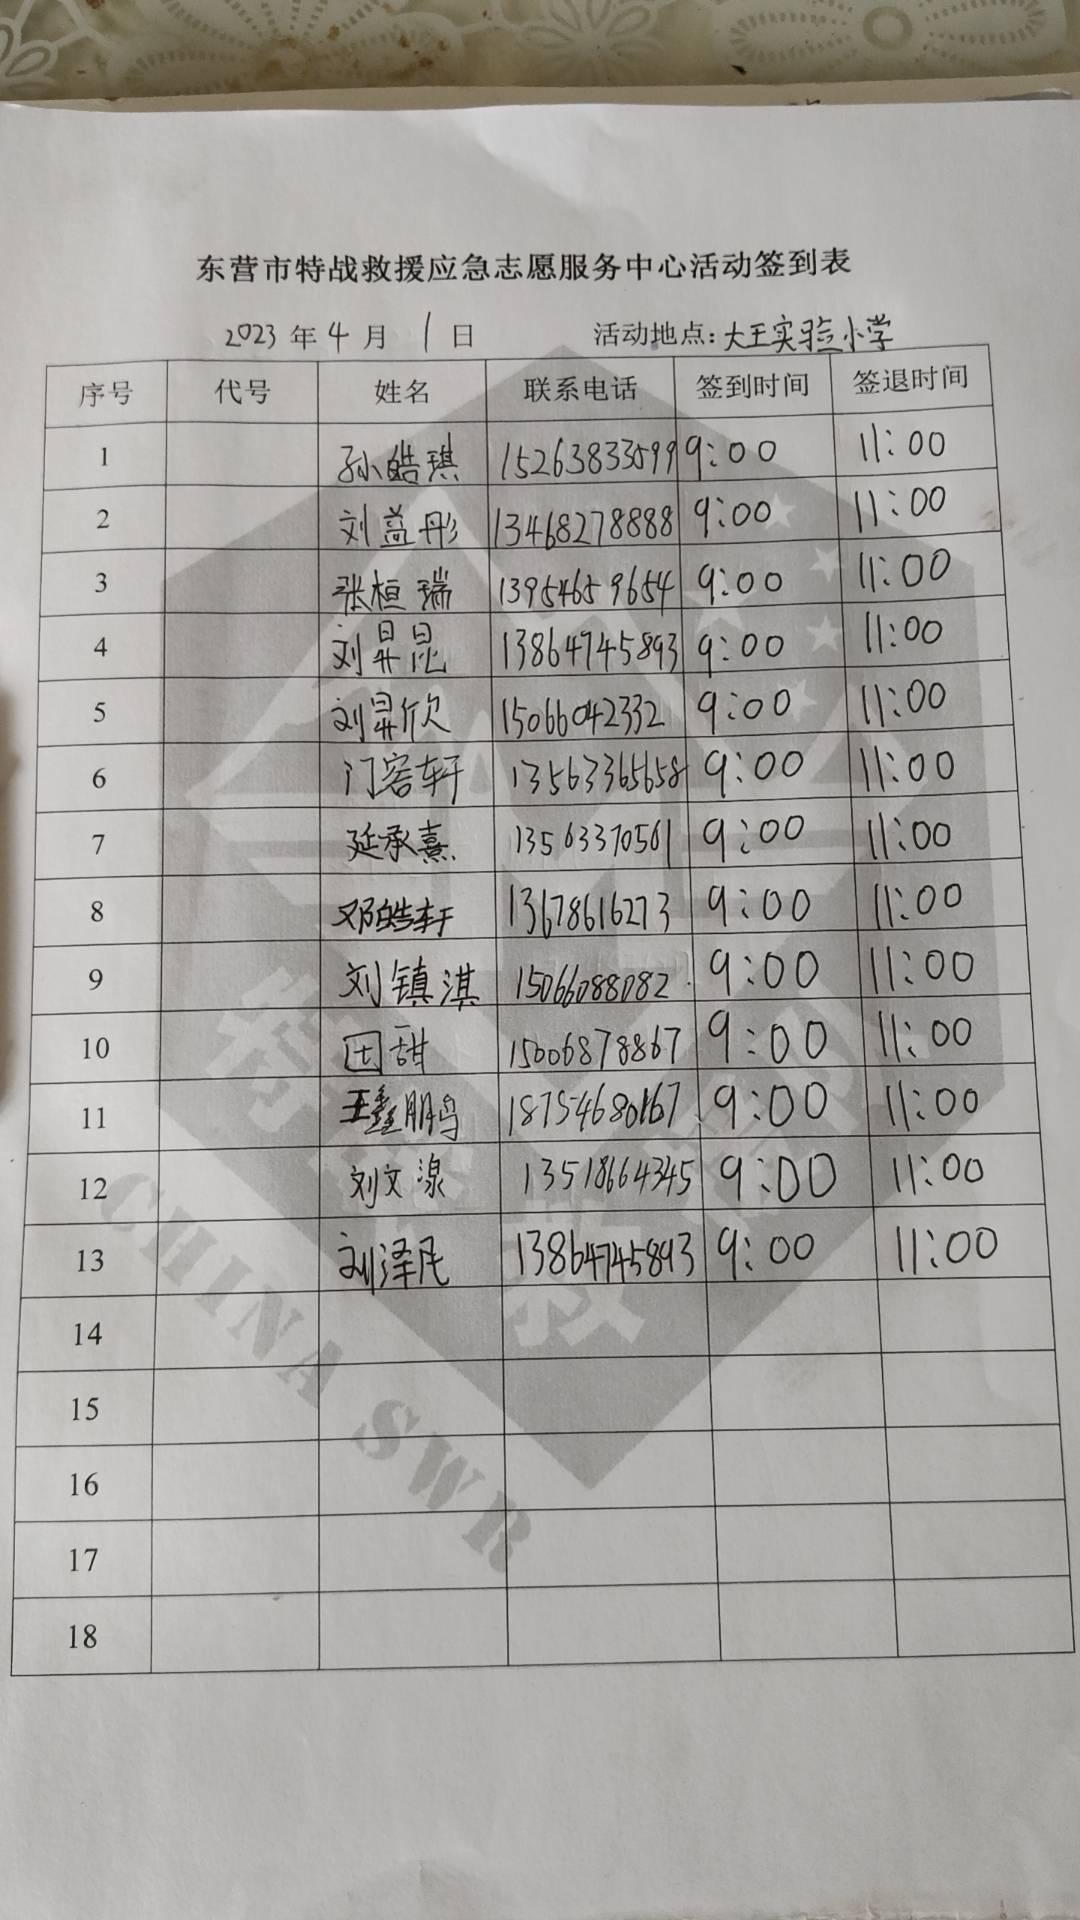 东营市特战救援应急志愿服务中心活动签到表
2023 年 4 月 1 日 活动地点: 大王实验小学
序号 代号 姓名 联系电话 签到时间 签退时间
1 孙皓琪 15263833599 9:00 11:00
2 刘益彤 13468278888 9:00 11:00
3 张桓瑞 13954659654 9:00 11:00
4 刘昇昆 13864745893 9:00 11:00
5 刘昇欣 15066042332 9:00 11:00
6 门客轩 13563365658 9:00 11:00
7 延承熹 13563370561 9:00 11:00
8 邓皓轩 13678616273 9:00 11:00
9 刘镇淇 15066088082 9:00 11:00
10 田甜 15006878867 9:00 11:00
11 王鑫鹏 18754680167 9:00 11:00
12 刘文湶 13518664345 9:00 11:00
13 刘泽民 13864745893 9:00 11:00
14
15
16
17
18
特战救援
CHINA SWR